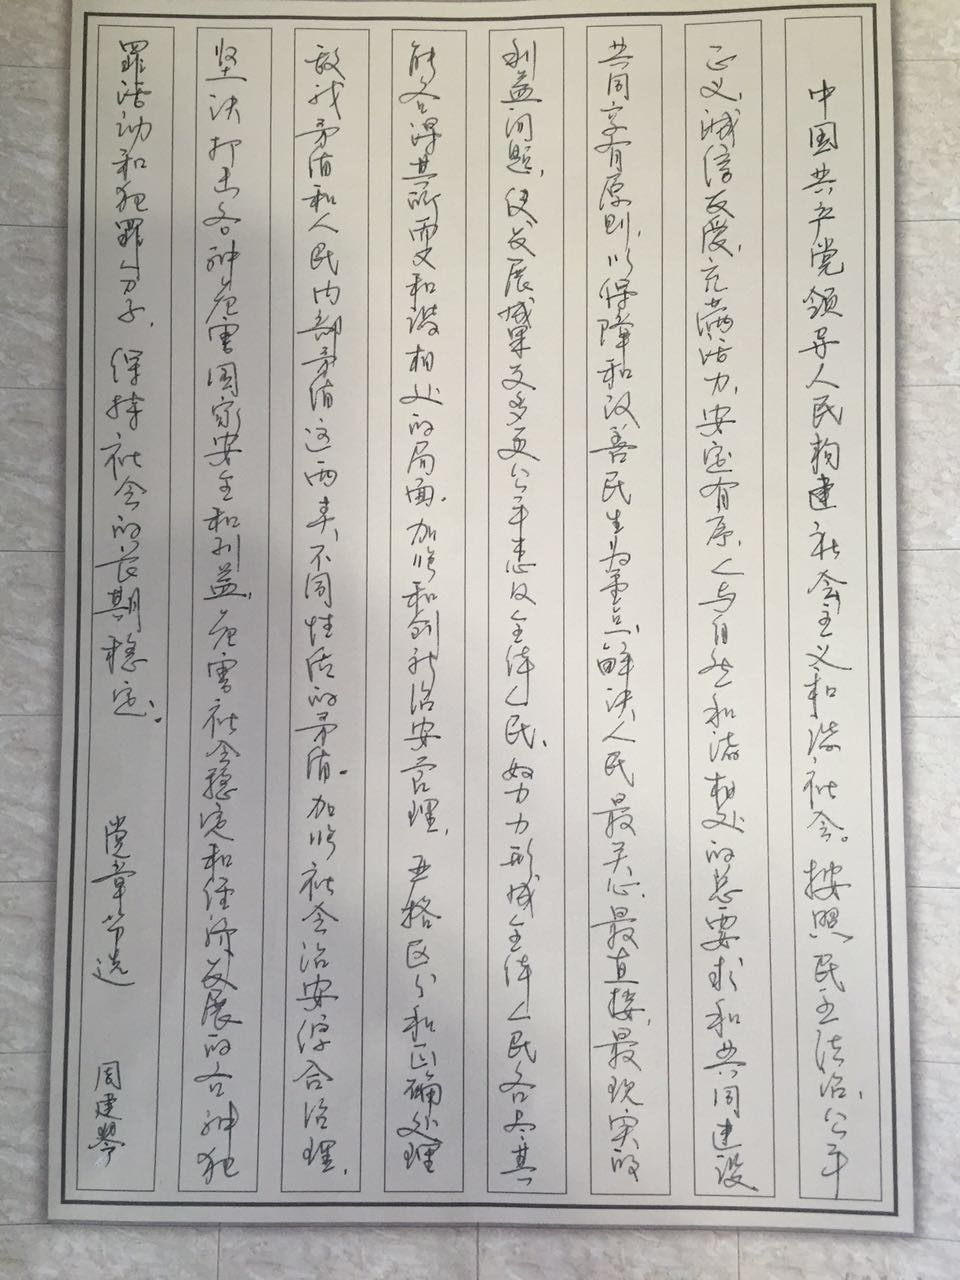 中国共产党领导人民构建社会主义和谐社会。按照民主法治、公平
正义、诚信友爱、充满活力、安定有序、人与自然和谐相处的总要求和共同建设
共同享有原则，以保障和改善民生为重点，解决人民最关心、最直接、最现实的
利益问题，使发展成果更多更公平惠及全体人民，努力形成全体人民各尽其
能、各得其所而又和谐相处的局面。加强和创新治安管理，严格区分和正确处理
敌我矛盾和人民内部矛盾这两类不同性质的矛盾。加强社会治安综合治理，
坚决打击各种危害国家安全和利益，危害社会稳定和经济发展的各种犯
罪活动和犯罪分子，保持社会的长期稳定。 党章节选 周建琴